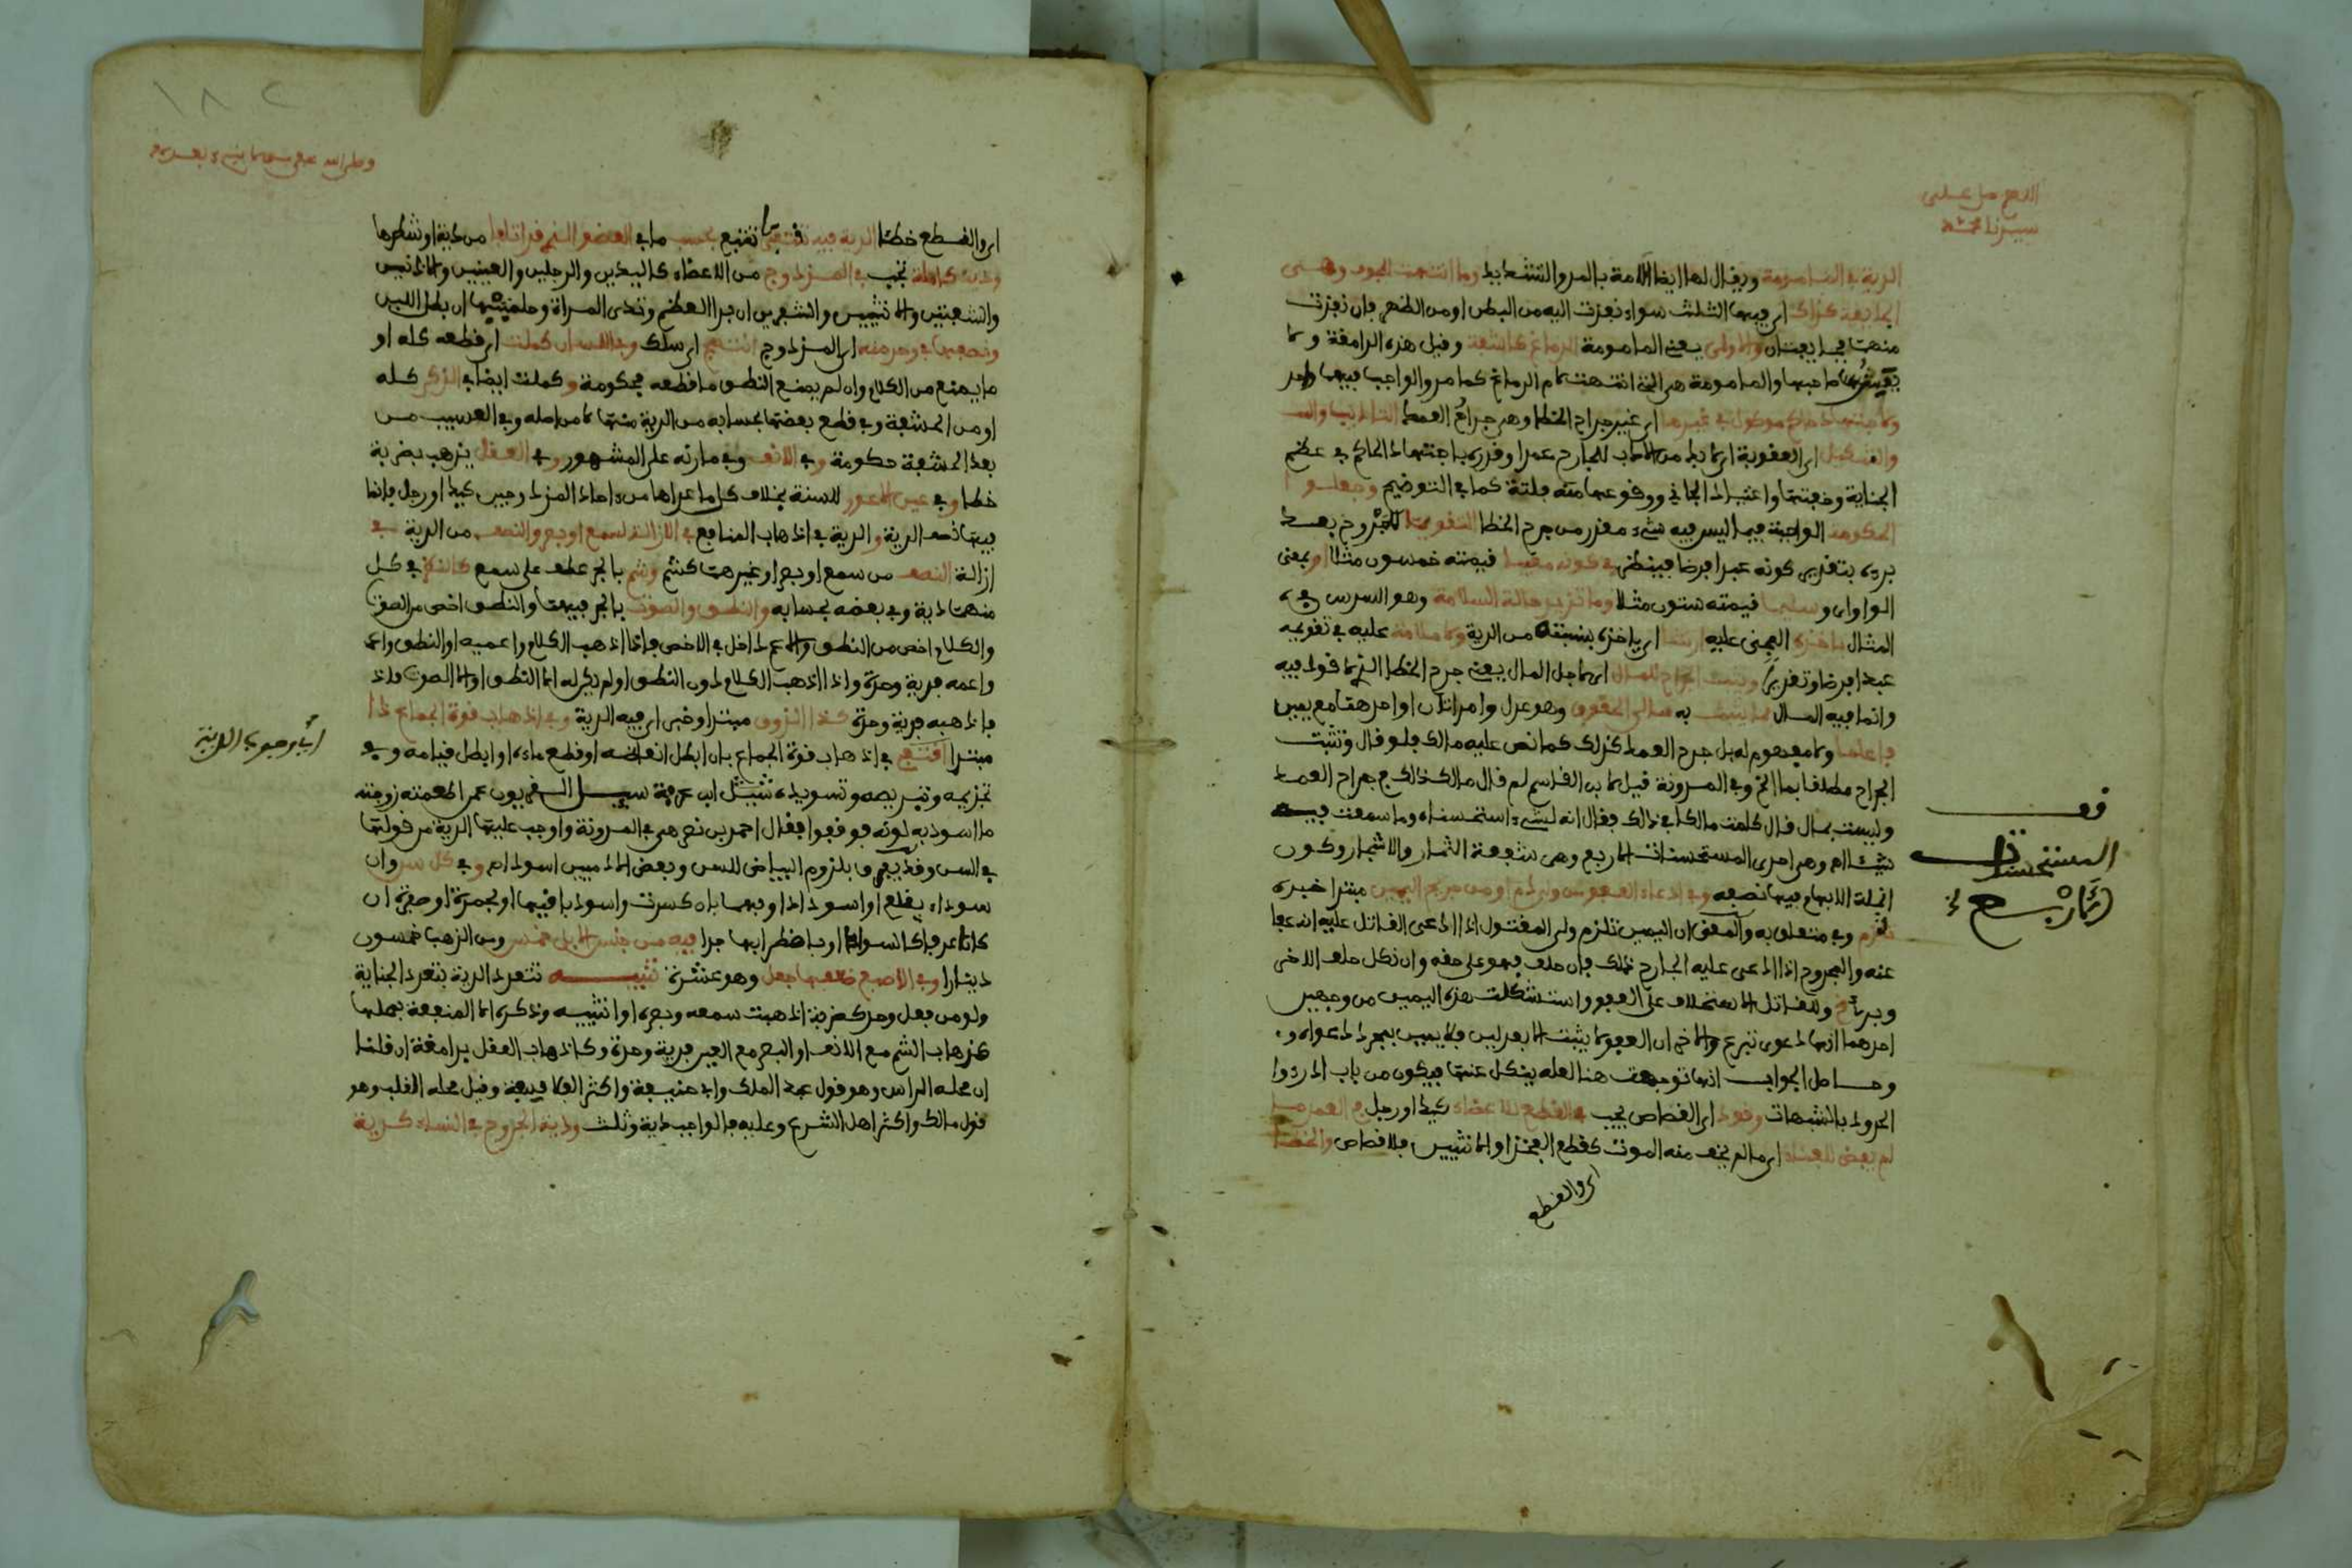 اللهم صل على
سيدنا محمد
الدية في المامومة ويقال لها ايضا الآمة بالمد والتشديد وما انتهت للجوف وهي
الجايفة كذاك اي فيها الثلث سواء نفذت اليه من البطن او من الظهر فان نفذت
منهما فجايفتان والاولى يعني المامومة الدماغ كاشفة وقيل هذه الدامغة ولا
يعيش صاحبها والمامومة هي التي انتهت لام الدماغ كما مر والواجب فيهما واحد
اي غير جراح الخطا وهي جراح العمد التاديب
اي العقوبة اي لا بد من الادب للجارح عمدا وقدره باجتهاد الحاكم في عظم
الجناية وخفتها واعتياد الجاني ووقوعها منه فلتة كما في التوضيح وجعلوا
الحكومة الواجبة فيما ليس فيه شيء مقدر من جرح الخطا التقويما للمجروح بعد
برءه بتقدير كونه عبدا فرضا فينظر في كونه معيبا قيمته خمسون مثلا او بمعنى
الواو اي وسليما قيمته ستون مثلا وما تزيد حالة السلامة وهو السدس في
المثال ياخذه المجنى عليه ارشا اي ياخذه بنسبته من الدية ولا ملامة عليه في تقويمه
عبدا فرضا وتقديرا ويثبت الجراح للمال اي لاجل المال يعني جرح الخطا الذي لا قود فيه
وانما فيه المال بما يثبت به مالي الحقوق وهو عدل وامراتان او احدهما مع يمين
فاعلما ولا مفهوم له بل جرح العمد كذلك كما نص عليه مالك فلو قال وتثبت
الجراح مطلقا بما الخ وفي المدونة قيل لابن القاسم لم قال مالك ذلك في جراح العمد
وليست بمال قال كلمت مالكا في ذلك فقال انه لشيء استحسناه وما سمعت فيه
شيئا اه وهي احدى المستحسنات الاربع وهي شفعة الثمار والاشجار وكون
انملة الابهام فيها نصفه وفي ادعاء العفو من ولي دم او من جريح اليمين مبتدا خبره
تلزم وفي متعلق به والمعنى ان اليمين تلزم ولي المقتول اذا ادعى القاتل عليه انه عفا
عنه والمجروح اذا ادعى عليه الجارح ذلك فان حلف فهو على حقه وان نكل حلف الاخر
وبرئ وللقاتل الاستحلاف على العفو واستشكلت هذه اليمين من وجهين
احدهما انها دعوى تبرع والاخر ان العفو لا يثبت الا بعدلين فلا يمين بمجرد دعواه
وحاصل الجواب انها توجهت هنا لعله ينكل عنها فيكون من باب ادرءوا
الحدود بالشبهات وقود اي القصاص يجب في القطع للاعضاء كيد او رجل في العمد
لم يفض للممات اي ما لم يخف منه الموت كقطع الفخذ او الانثيين فلا قصاص والخطا
اي والقطع
قف
المستحسنات
الاربع
١٨٢
وصلى الله على
اي والقطع خطئا الدية فيه تقتفي تتبع بحسب ما في العضو الذي قد اتلفا من دية او شطرها
ودية كاملة تجب في المزدوج من الاعضاء كاليدين والرجلين والعينين والاذنين
والشفتين والانثيين والشفرين ان بدا العظم وثدي المراة وحلمتيهما ان بطل اللبن
ونصفها في واحد منه اي المزدوج انتهج اي سلك وفي اللسان كملت اي قطعه كله او
ما يمنع من الكلام وان لم يمنع النطق ما قطعه فحكومة وكملت ايضا في الذكر كله
او من الحشفة وفي قطع بعضها بحسابه من الدية منها لا من اصله وفي العسيب من
بعد الحشفة حكومة وفي الانف وفي مارنه على المشهور وفي العقل يذهب بضربة
خطا وفي عين الاعور للسنة بخلاف كل ما عداها من احاد المزدوجين كيد او رجل فانما
فيها نصف الدية والدية في اذهاب المنافع في ازالة لسمع او بصر والنصف من الدية في
ازالة النصف من سمع او بصر او غيرهما كشم وشم بالجر عطف على سمع كالذكر في كل
منهما دية وفي بعضه بحسابه والنطق والصوت بالجر فيهما والنطق اخص من الصوت
والكلام اخص من النطق والاعم داخل في الاخص فاذا اذهب الكلام واعميه او النطق واعمه
واعمه فدية واحدة واذا اذهب الكلام دون النطق او لم يكن له الا النطق او الا الصوت
فاذهبه فدية واحدة كذا الذوق مبتدا وخبر اي فيه الدية وفي اذهاب قوة الجماع ذا
مبتدا اقتفي في اذهاب قوة الجماع بان ابطل انعاظه او قطع ماءه او ابطل قيامه وفي
تجذيمه وتبريصه وتسويده تنبيه ابن عرفة سئل القرويون عمن اطعمته زوجته
ما اسود به لونه فوقفوا فقال احمد بن نصر هي في المدونة واوجب عليها الدية من قولها
في السن وقد يفرق بلزوم البياض للسن وبعض الادميين اسود اه وفي كل سن وان
سوداء بقلع او اسوداد او بهما بان كسرت واسود باقيها او بحمرة او صفرة ان
كانا عرفا كالسواد او باضطرابها جدا فيه من جنس الابل خمس ومن الذهب خمسون
دينارا وفي الاصبع ضعفها جعل وهو عشرة تنبيه تتعدد الدية بتعدد الجناية
ولو من فعل واحد كضربة اذهبت سمعه وبصره او انثييه وذكره الا المنفعة بمحلها
كذهاب الشم مع الانف او البصر مع العين فدية واحدة وكاذهاب العقل بدامغة ان قلنا
ان محله الراس وهو قول عبد الملك وابي حنيفة واكثر الفلاسفة وقيل محله القلب وهو
قول مالك واكثر اهل الشرع وعليه فالواجب دية وثلث ودية الجروح في النساء كدية